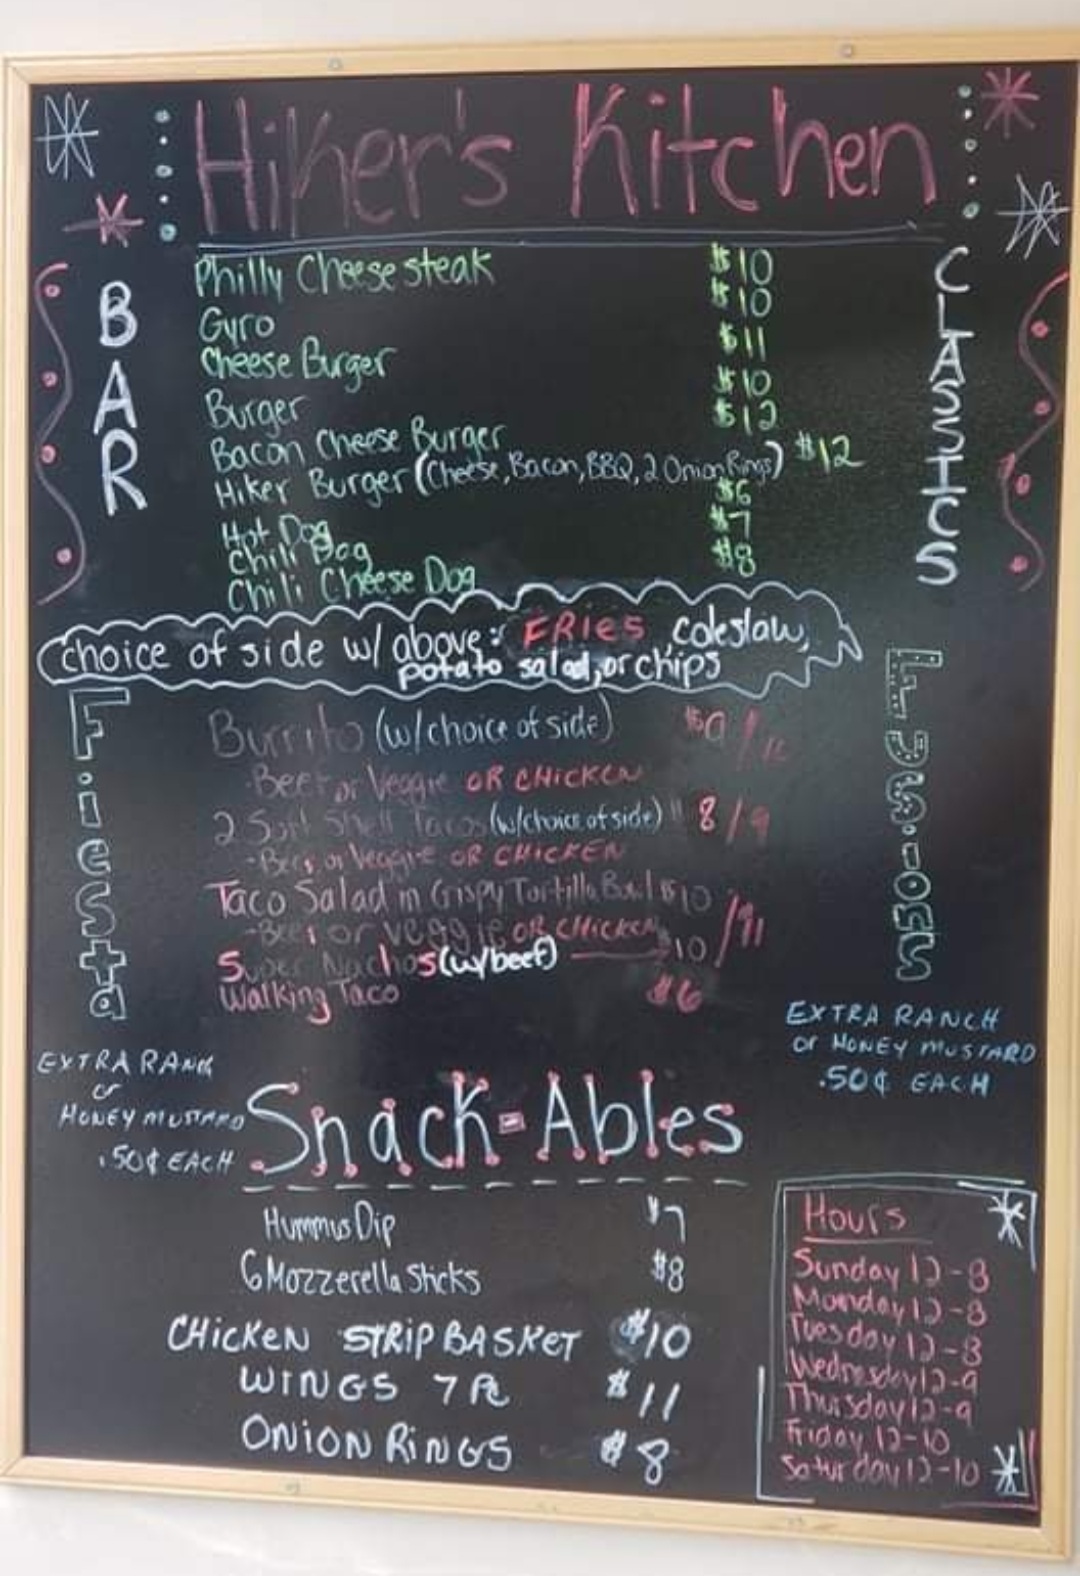 Hiker's Kitchen
BAR
CLASSICS
Philly Cheese steak $10
Gyro $10
Cheese Burger $11
Burger $10
Bacon Cheese Burger $12
Hiker Burger (Cheese, Bacon, BBQ, 2 Onion Rings) $12
Hot Dog $6
Chili Dog $7
Chili Cheese Dog $8
choice of side w/ above: FRIES, coleslaw,
potato salad, or chips
Fiesta
Burrito (w/choice of side) $9/
-Beef or Veggie OR CHICKEN
2 Soft Shell Tacos (w/choice of side) 8/9
-Beef or Veggie OR CHICKEN
Taco Salad in Crispy Tortilla Bowl $10 /11
-Beef or veggie OR CHICKEN
Super Nachos (w/beef) 10
Walking Taco $6
EXTRA RANCH
or HONEY MUSTARD
.50¢ EACH
EXTRA RANCH
or
HONEY MUSTARD
.50¢ EACH
Snack-Ables
Hummus Dip $7
6 Mozzerella Sticks $8
CHICKEN STRIP BASKET $10
WINGS 7 PC $11
ONION RINGS $8
Hours
Sunday 12-8
Monday 12-8
Tuesday 12-8
Wednesday 12-9
Thursday 12-9
Friday 12-10
Saturday 12-10